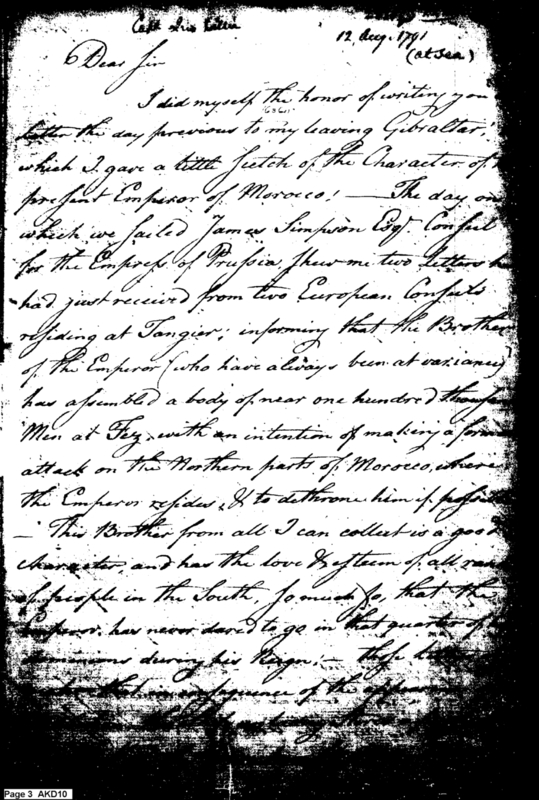 12 Aug. 1791
(at sea)
Dear Sir
I did myself the honor of writing you
letter the day previous to my leaving Gibraltar,
which I gave a little sketch of the Character of
present Emperor of Morocco! — The day on
which we sailed James Simpson Esqr. Consul
for the Empress of Prussia, shew me two letters he
had just received from two European Consuls
residing at Tangier; informing that the Brother
of the Emperor (who have always been at variance)
has assembled a body of near one hundred thousand
Men at Fez, with an intention of making a
attack on the Northern parts of Morocco, where
the Emperor resides, & to dethrone him if possible
— This Brother from all I can collect is a good
character, and has the love & esteem of all
of people in the South, so much so, that the
Emperor has never dared to go in that quarter of
during his Reign; — These
that in consequence of the
Page 3 AKD10